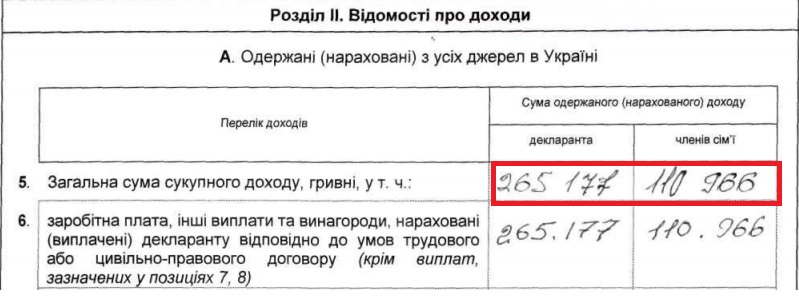 Розділ ІІ. Відомості про доходи
А. Одержані (нараховані) з усіх джерел в Україні
Перелік доходів
Сума одержаного (нарахованого) доходу
декларанта
членів сім’ї
5. Загальна сума сукупного доходу, гривні, у т. ч.: 265 177 110 966
6. заробітна плата, інші виплати та винагороди, нараховані
(виплачені) декларанту відповідно до умов трудового
або цивільно-правового договору (крім виплат,
зазначених у позиціях 7, 8) 265.177 110.966